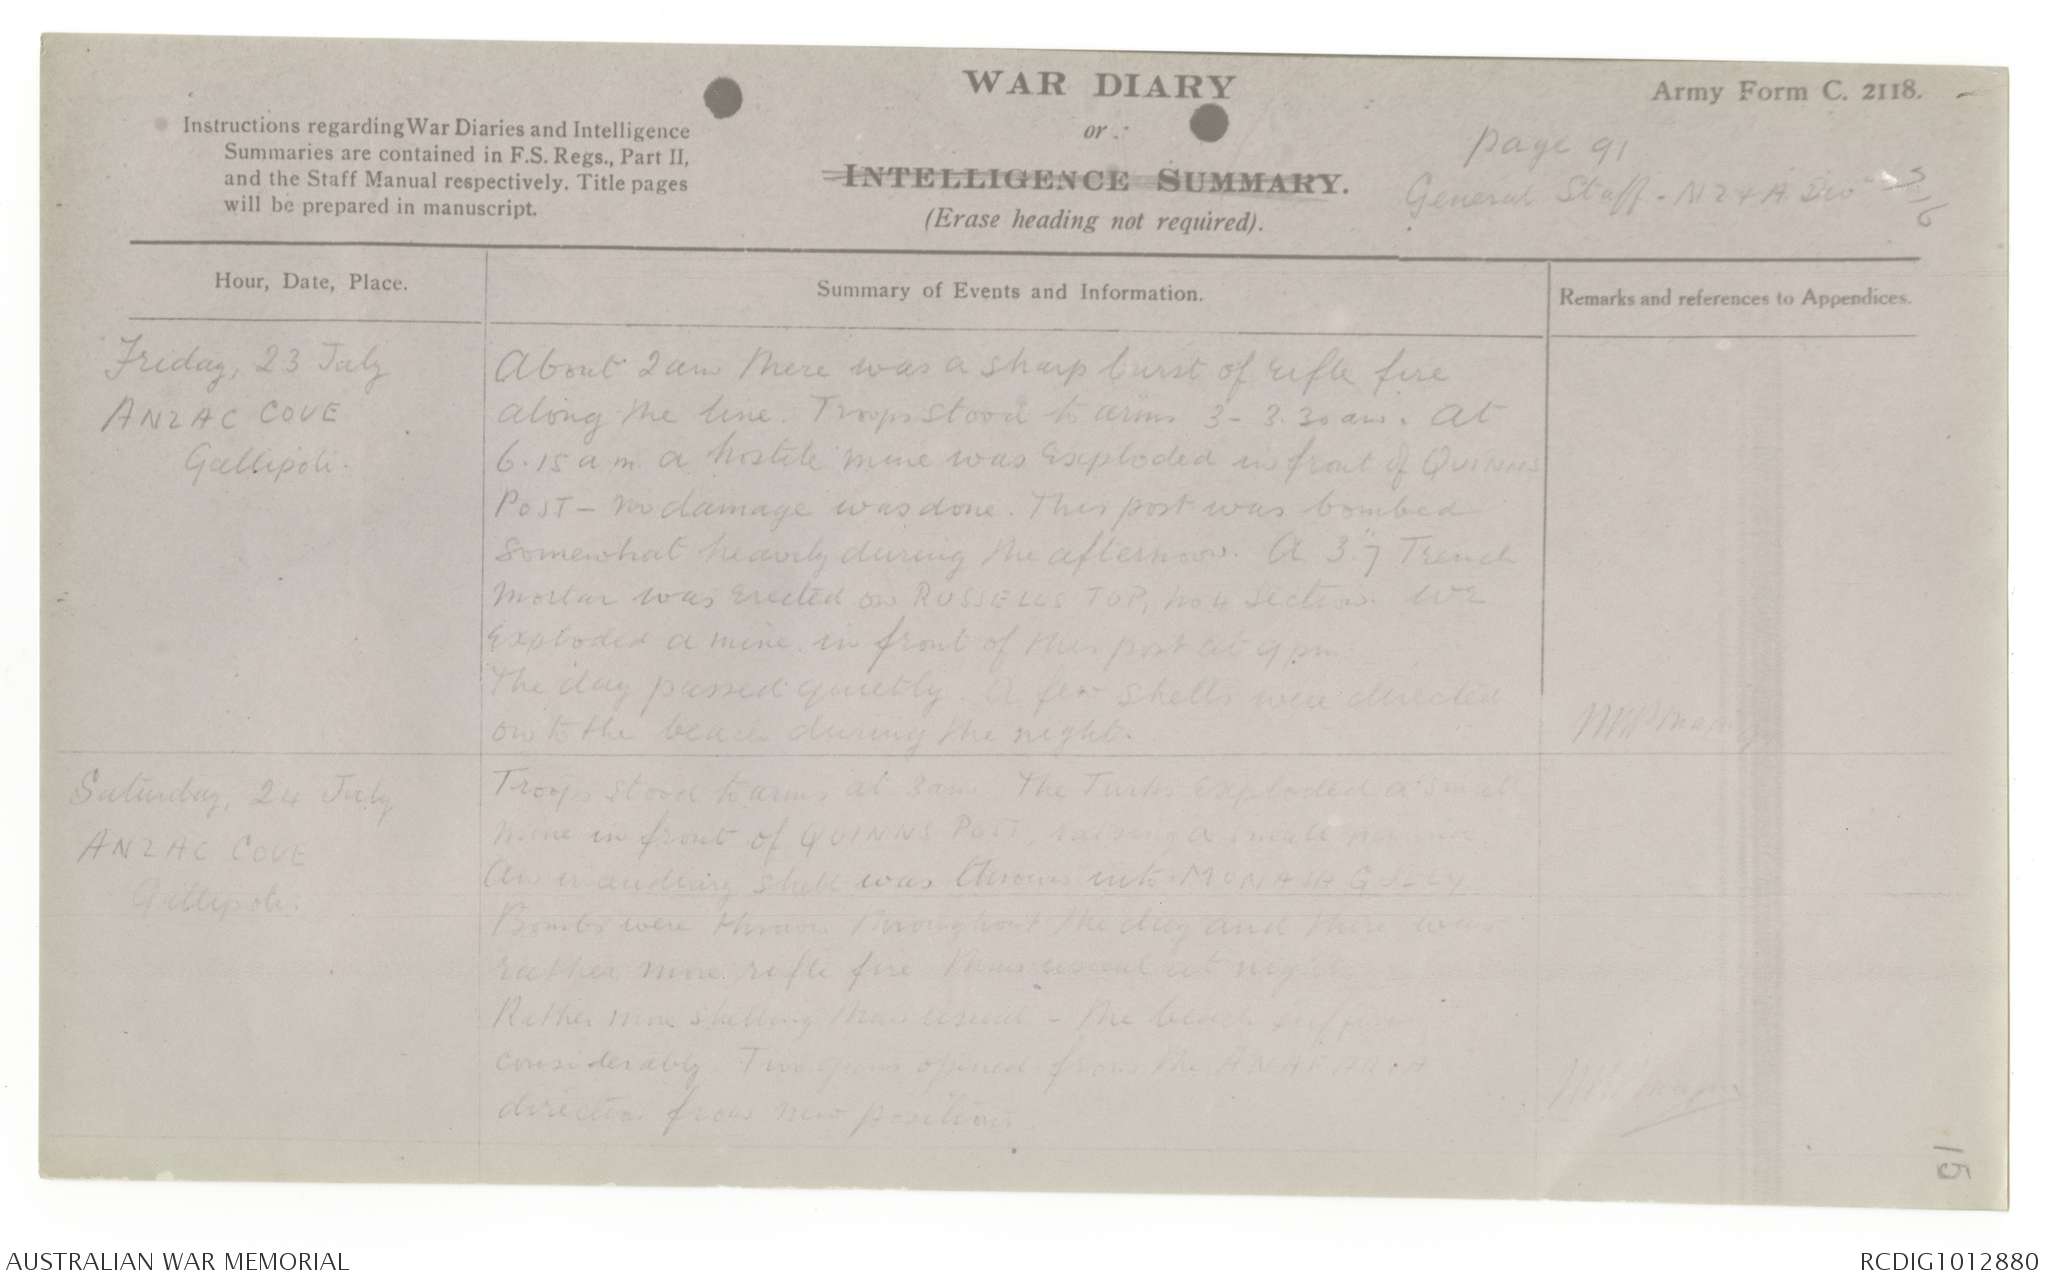 WAR DIARY
or
INTELLIGENCE SUMMARY.
(Erase heading not required).
Army Form C. 2118.
Instructions regarding War Diaries and Intelligence
Summaries are contained in F.S. Regs., Part II,
and the Staff Manual respectively. Title pages
will be prepared in manuscript.
page 91
General Staff - NZ & A Div
Hour, Date, Place.
Summary of Events and Information.
Remarks and references to Appendices.
Friday, 23 July
ANZAC COVE
Gallipoli.
About 2 am there was a sharp burst of rifle fire
along the line. Troops stood to arms 3 - 3.30 am. At
6.15 am a hostile mine was exploded in front of QUINNS
POST - no damage was done. This post was bombed
somewhat heavily during the afternoon. A 3".7 Trench
Mortar was erected on RUSSELLS TOP, No 4 Section. We
exploded a mine in front of this post at 9 pm.
The day passed quietly. A few shells were directed
on to the beach during the night.
Saturday, 24 July
ANZAC COVE
Gallipoli.
Troops stood to arms at 3am. The Turks exploded a small
mine in front of QUINNS POST, a
An incendiary shell was thrown into MONASH GULLY
Bombs were thrown throughout the day and there was
rather more rifle fire than usual at night
Rather more shelling than usual - the beach
considerably. Two guns opened from the ANAFARTA
direction from new positions.
15
AUSTRALIAN WAR MEMORIAL
RCDIG1012880